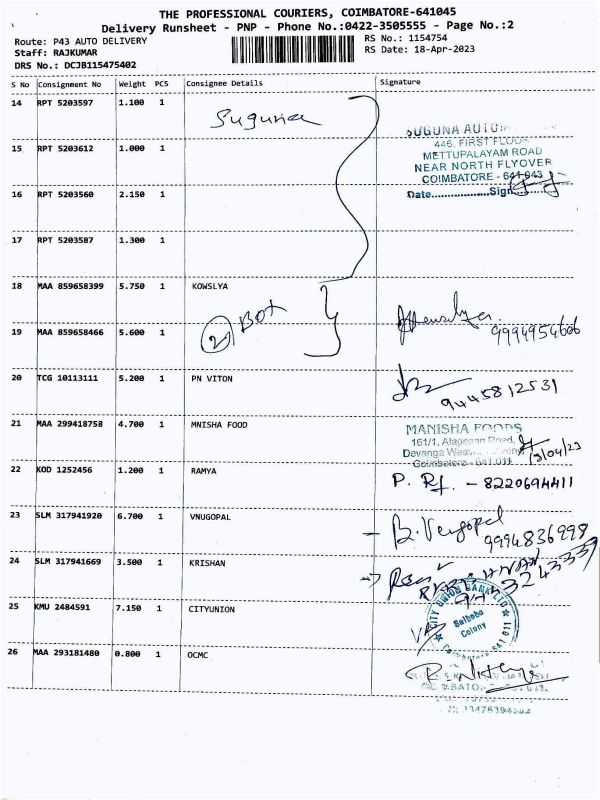 THE PROFESSIONAL COURIERS, COIMBATORE-641045
Delivery Runsheet - PNP - Phone No.:0422-3505555 - Page No.:2
Route: P43 AUTO DELIVERY
RS No.: 1154754
Staff: RAJKUMAR
RS Date: 18-Apr-2023
DRS No.: DCJB115475402
S No Consignment No Weight PCS Consignee Details Signature
14 RPT 5203597 1.100 1
Suguna
SUGUNA
446, FIRST FLOOR
15 RPT 5203612 1.000 1
METTUPALAYAM ROAD
NEAR NORTH FLYOVER
COIMBATORE - 641 043
16 RPT 5203560 2.150 1
Date..................Sign
17 RPT 5203587 1.300 1
18 MAA 859658399 5.750 1 KOWSLYA
2 Box
9994954606
19 MAA 859658466 5.600 1
20 TCG 10113111 5.200 1 PN VITON
9445812531
21 MAA 299418758 4.700 1 MNISHA FOOD
MANISHA FOODS
161/1, Alagesan Road,
Devanga
18/04/23
Coimbatore - 641 011
22 KOD 1252456 1.200 1 RAMYA
P. - 8220694411
23 SLM 317941920 6.700 1 VNUGOPAL
B. Venugopal
9994836998
24 SLM 317941669 3.500 1 KRISHAN
25 KMU 2484591 7.150 1 CITYUNION
CITY UNION BANK LTD
Saibaba
Colony
26 MAA 293181480 0.800 1 OCMC